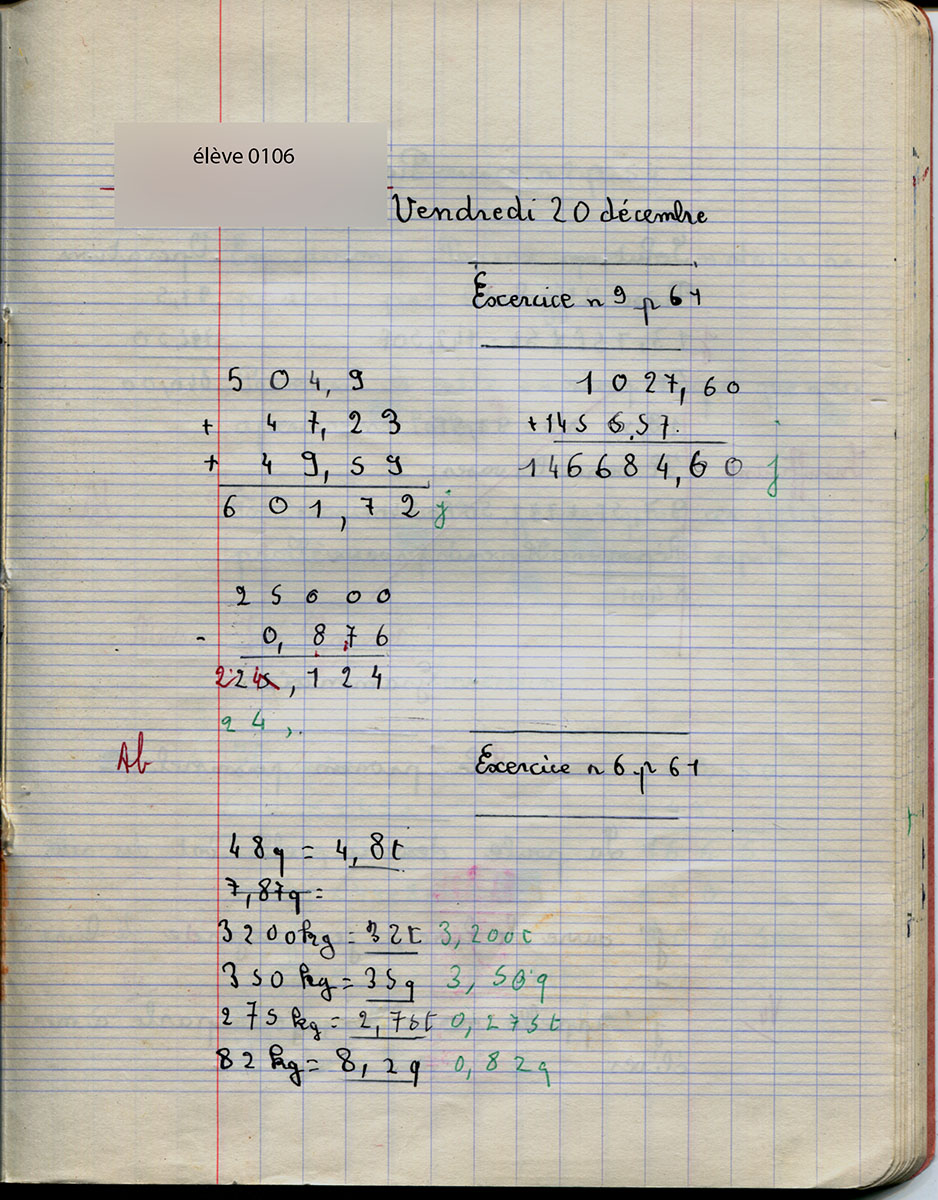 élève 0106
Vendredi 20 décembre
Excercice n 9 p 61
504,9
+ 47,23
+ 49,59
601,72 j
1027,60
+1456,57.
146684,60 j
25000
- 0,876
24,124
24,.
Ab
Excercice n 6 p 61
48q = 4,8t
7,87q =
3200kg = 32t 3,200t
350 kg = 35q 3,50q
275 kg = 2,75t 0,275t
82 kg = 8,2q 0,82q